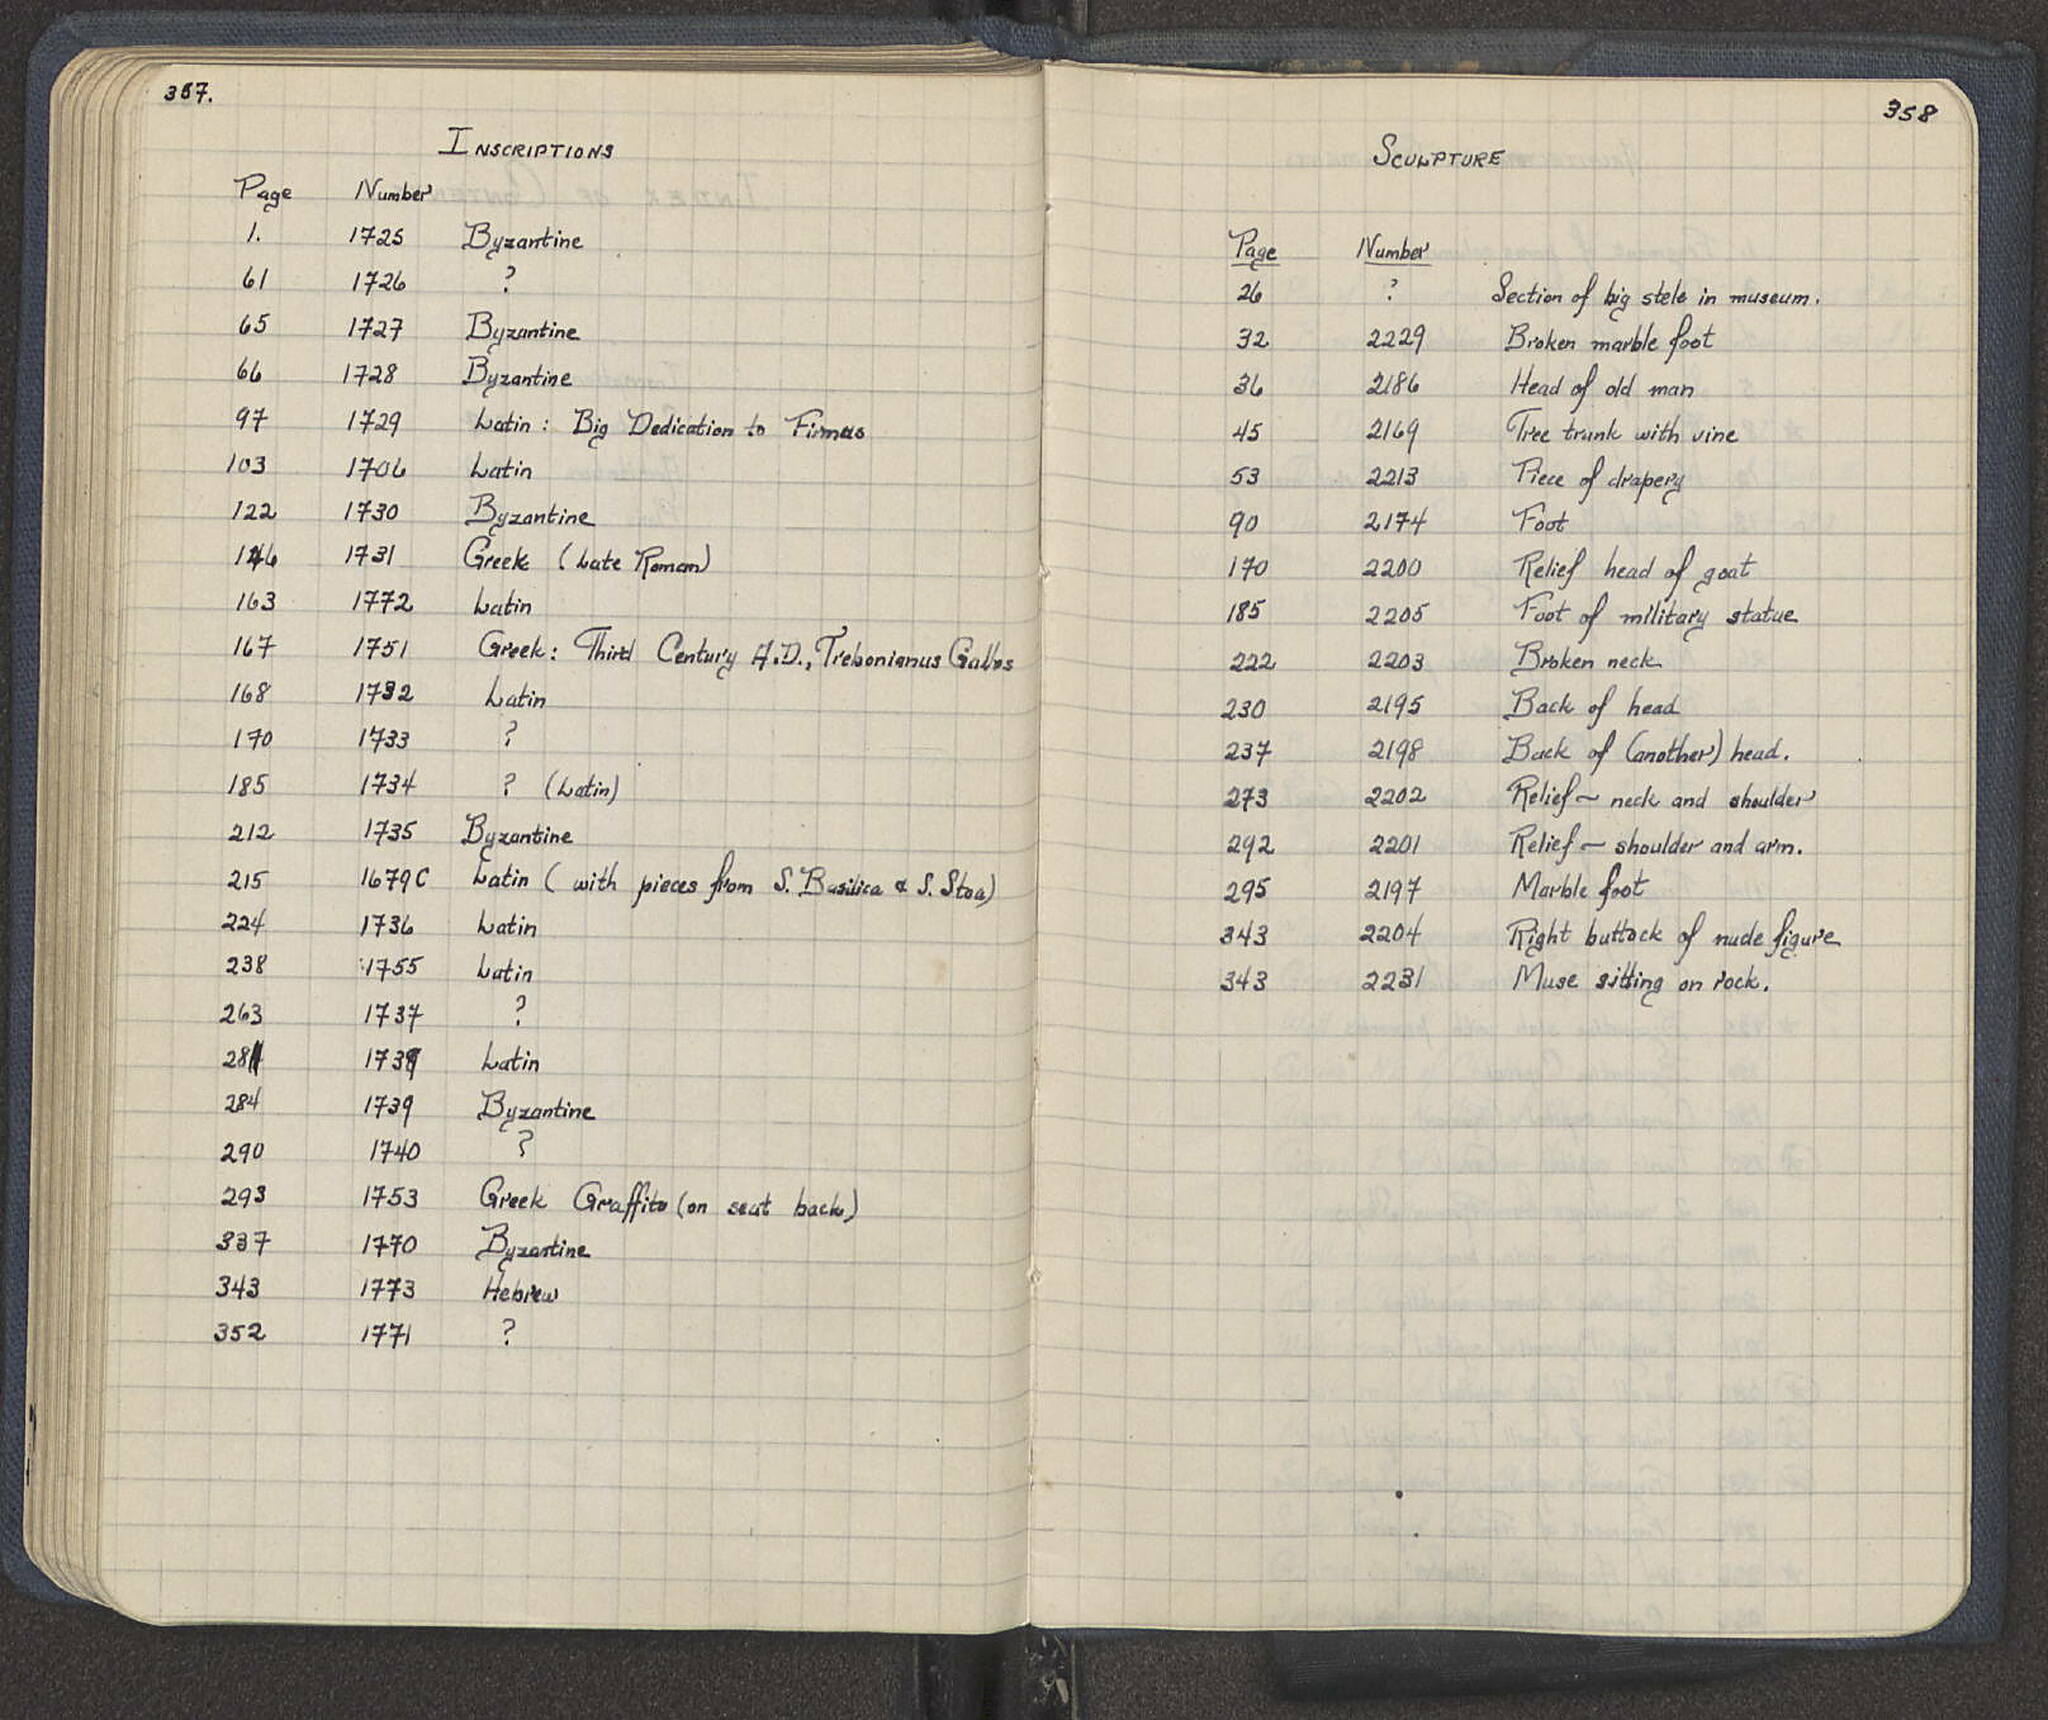 357.
INSCRIPTIONS
Page Number
1. 1725 Byzantine
61 1726 ?
65 1727 Byzantine
66 1728 Byzantine
97 1729 Latin : Big Dedication to Firmus
103 1706 Latin
122 1730 Byzantine
146 1731 Greek (Late Roman)
163 1772 Latin
167 1751 Greek : Third Century A.D., Trebonianus Gallus
168 1732 Latin
170 1733 ?
185 1734 ? (Latin)
212 1735 Byzantine
215 1679C Latin ( with pieces from S. Basilica & S. Stoa)
224 1736 Latin
238 1755 Latin
263 1737 ?
Latin
284 1739 Byzantine
290 1740 ?
293 1753 Greek Graffito (on seat back)
337 1770 Byzantine
343 1773 Hebrew
352 1771 ?
358
SCULPTURE
Page Number
26 ? Section of big stele in museum.
32 2229 Broken marble foot
36 2186 Head of old man
45 2169 Tree trunk with vine
53 2213 Piece of drapery
90 2174 Foot
170 2200 Relief head of goat
185 2205 Foot of military statue
222 2203 Broken neck
230 2195 Back of head
237 2198 Back of (another) head.
273 2202 Relief ~ neck and shoulder
292 2201 Relief ~ shoulder and arm.
295 2197 Marble foot
343 2204 Right buttock of nude figure
343 2231 Muse sitting on rock.